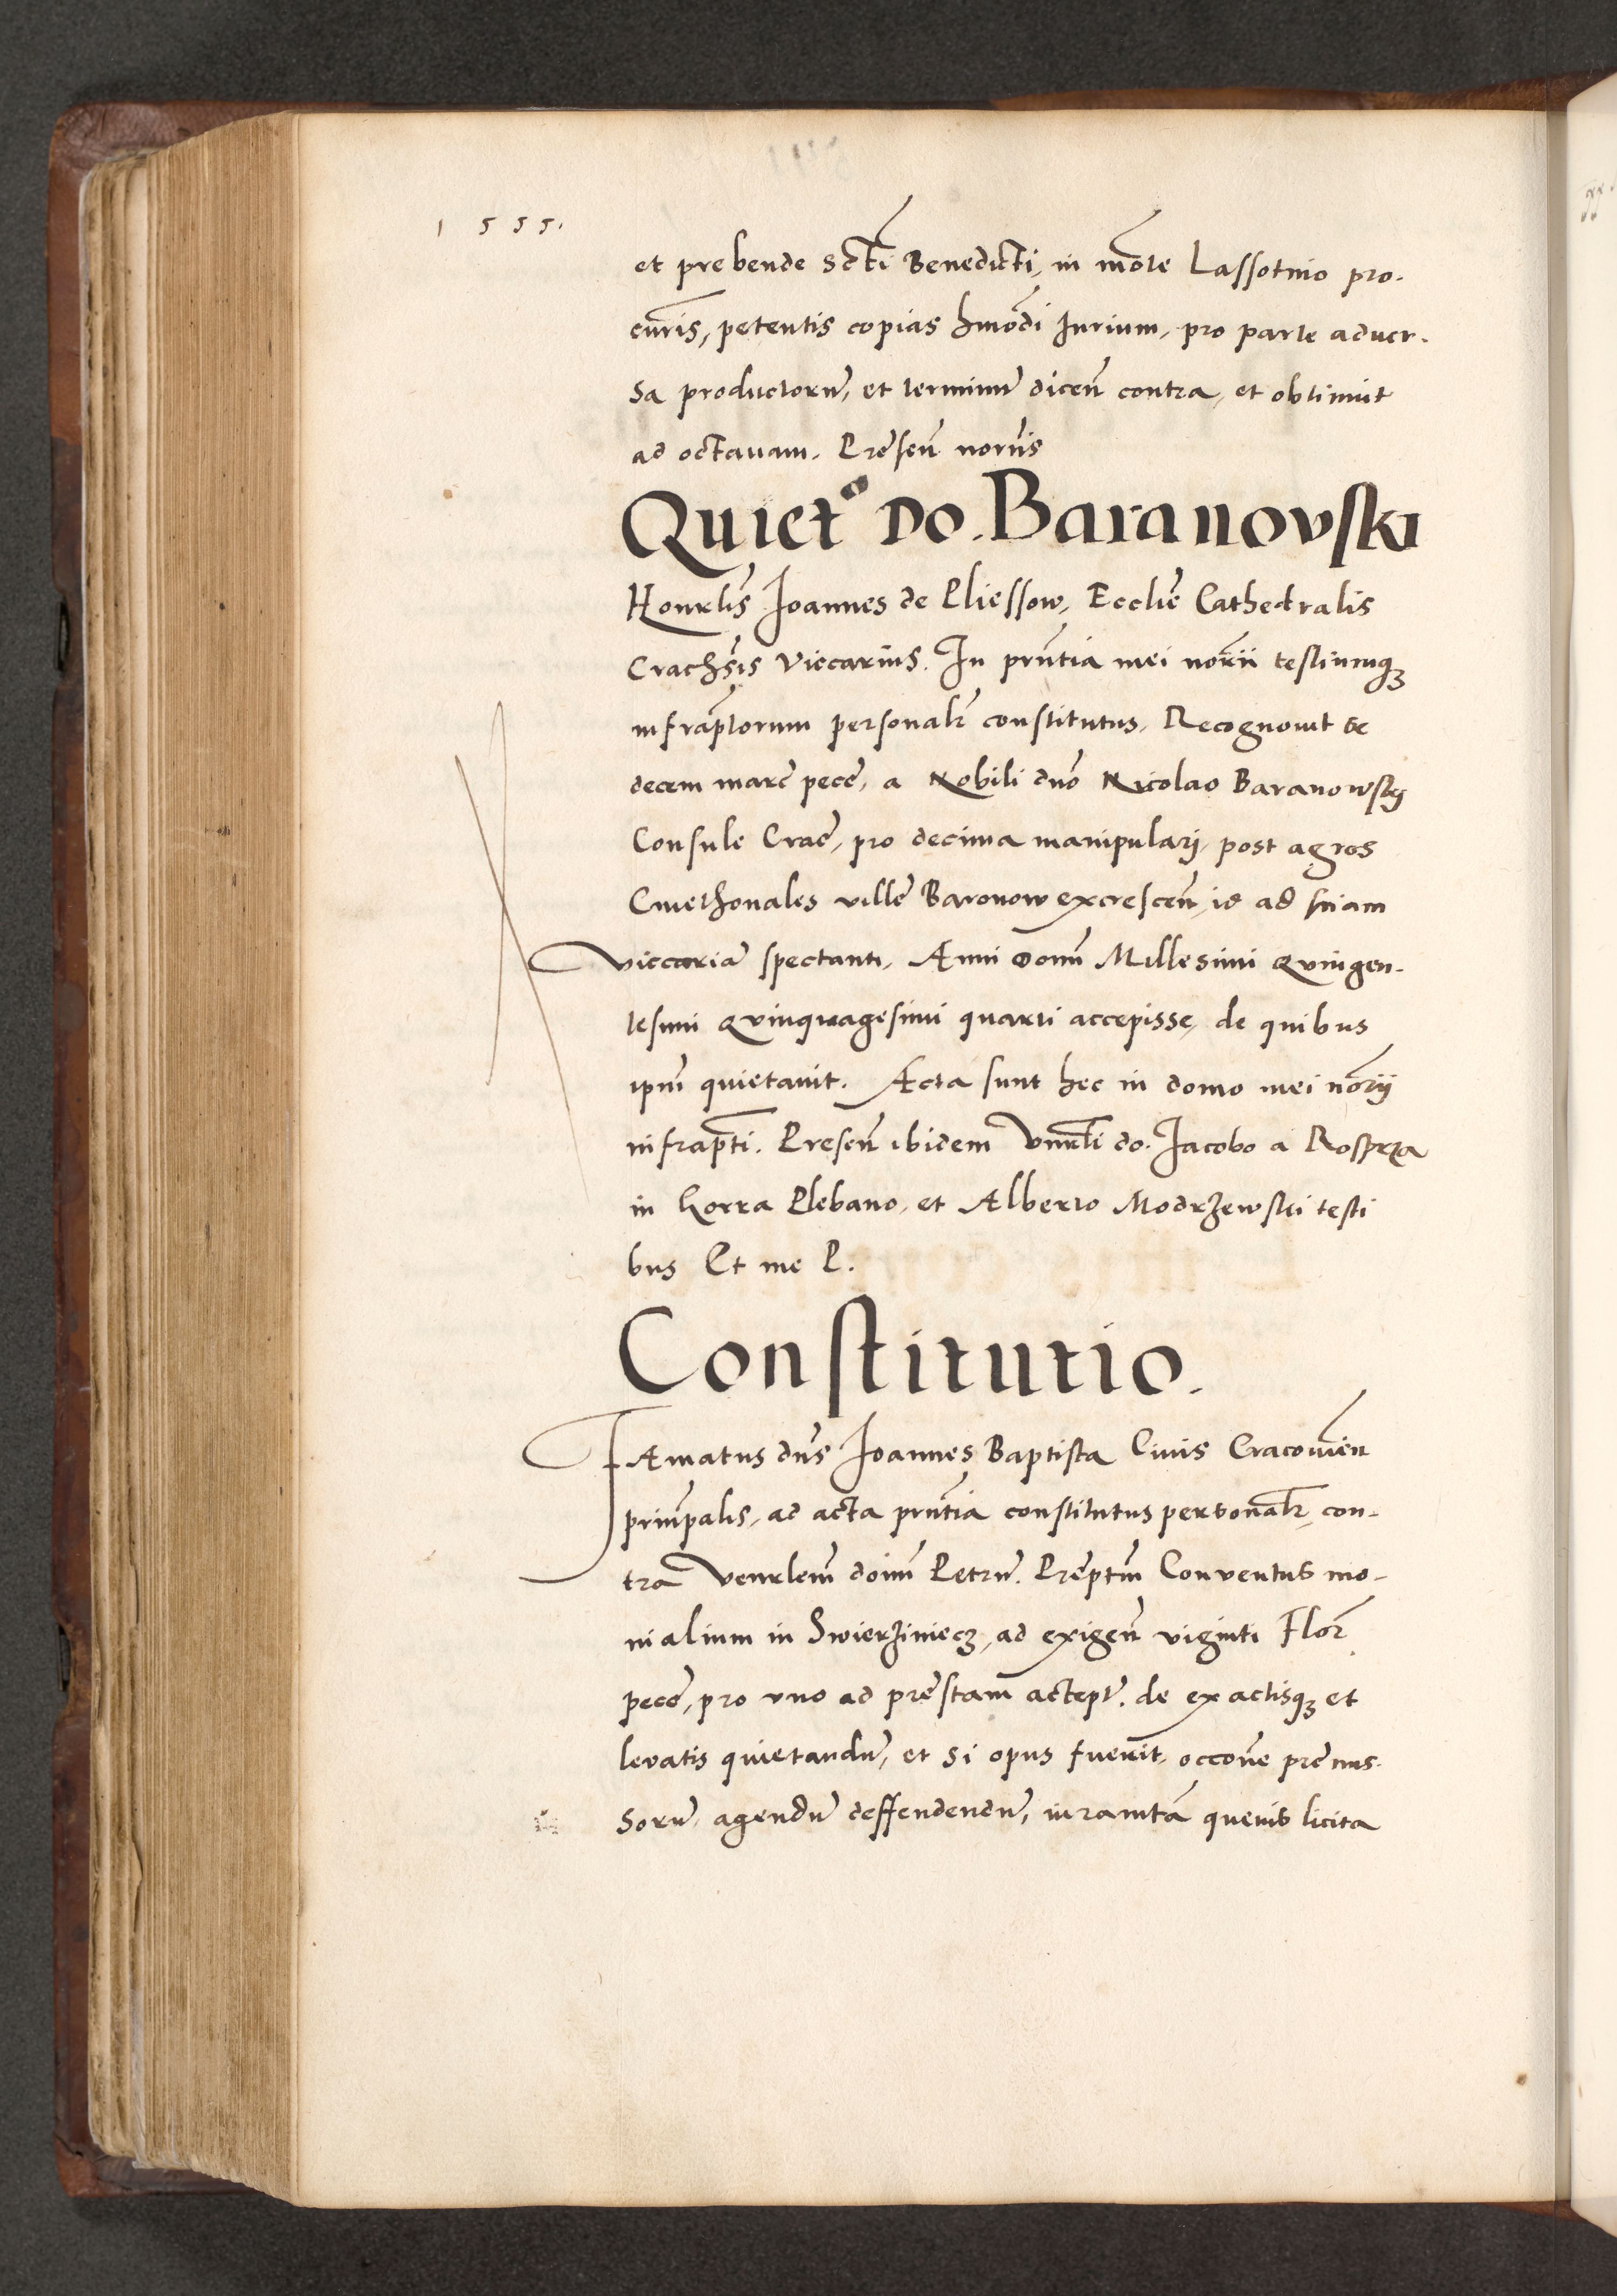 1555.
et prebende Scti Benedicti, in mote Lassotnio pro.
curis, petentis copias hmodi Iurium, pro parte aduer.
sa productoru, et terminu dicen contra, et obtinuit
ad octauam. Presen noriis
Quietº Do. Baranovski
Honrlis Joannes de Pliessow, Ecclie Cathedralis
Crachsis Viccarius. In prntia mei norii testiumqȝ
infraptorum personalr constitutus, Recognouit se
decem marc pecc, a Nobili dno Nicolao Baranowsky
Consule Crac, pro decima manipulari, post agros
Cmethonales ville Baronow excrescen, id ad suam
viccaria spectanti, Anni Domi Millesimi Quingen.
tesimi Quinquagesimi quarti accepisse, de quibus
ipm quietauit. Acta sunt hec in domo mei norij
infrapti. Presen ibidem Vnrbli do. Jacobo a Rosprza
in Korra Plebano, et Alberto Modrzewski testi
bus Et me P.
Constitutio.
Famatus dns Joannes Baptista Ciuis Cracouien
principalis, ad acta prntia constitutus personalr, con-
tra Venrlem doim Petru. Preptm Conventus mo-
nialium in Swierziniecz, ad exigen viginti Flor
pecc, pro vno ad prestam accept. de exactisqȝ et
levatis quietandu, et si opus fuerit, occone premis.
soru, agendu deffendendu, iuramta quevis licita